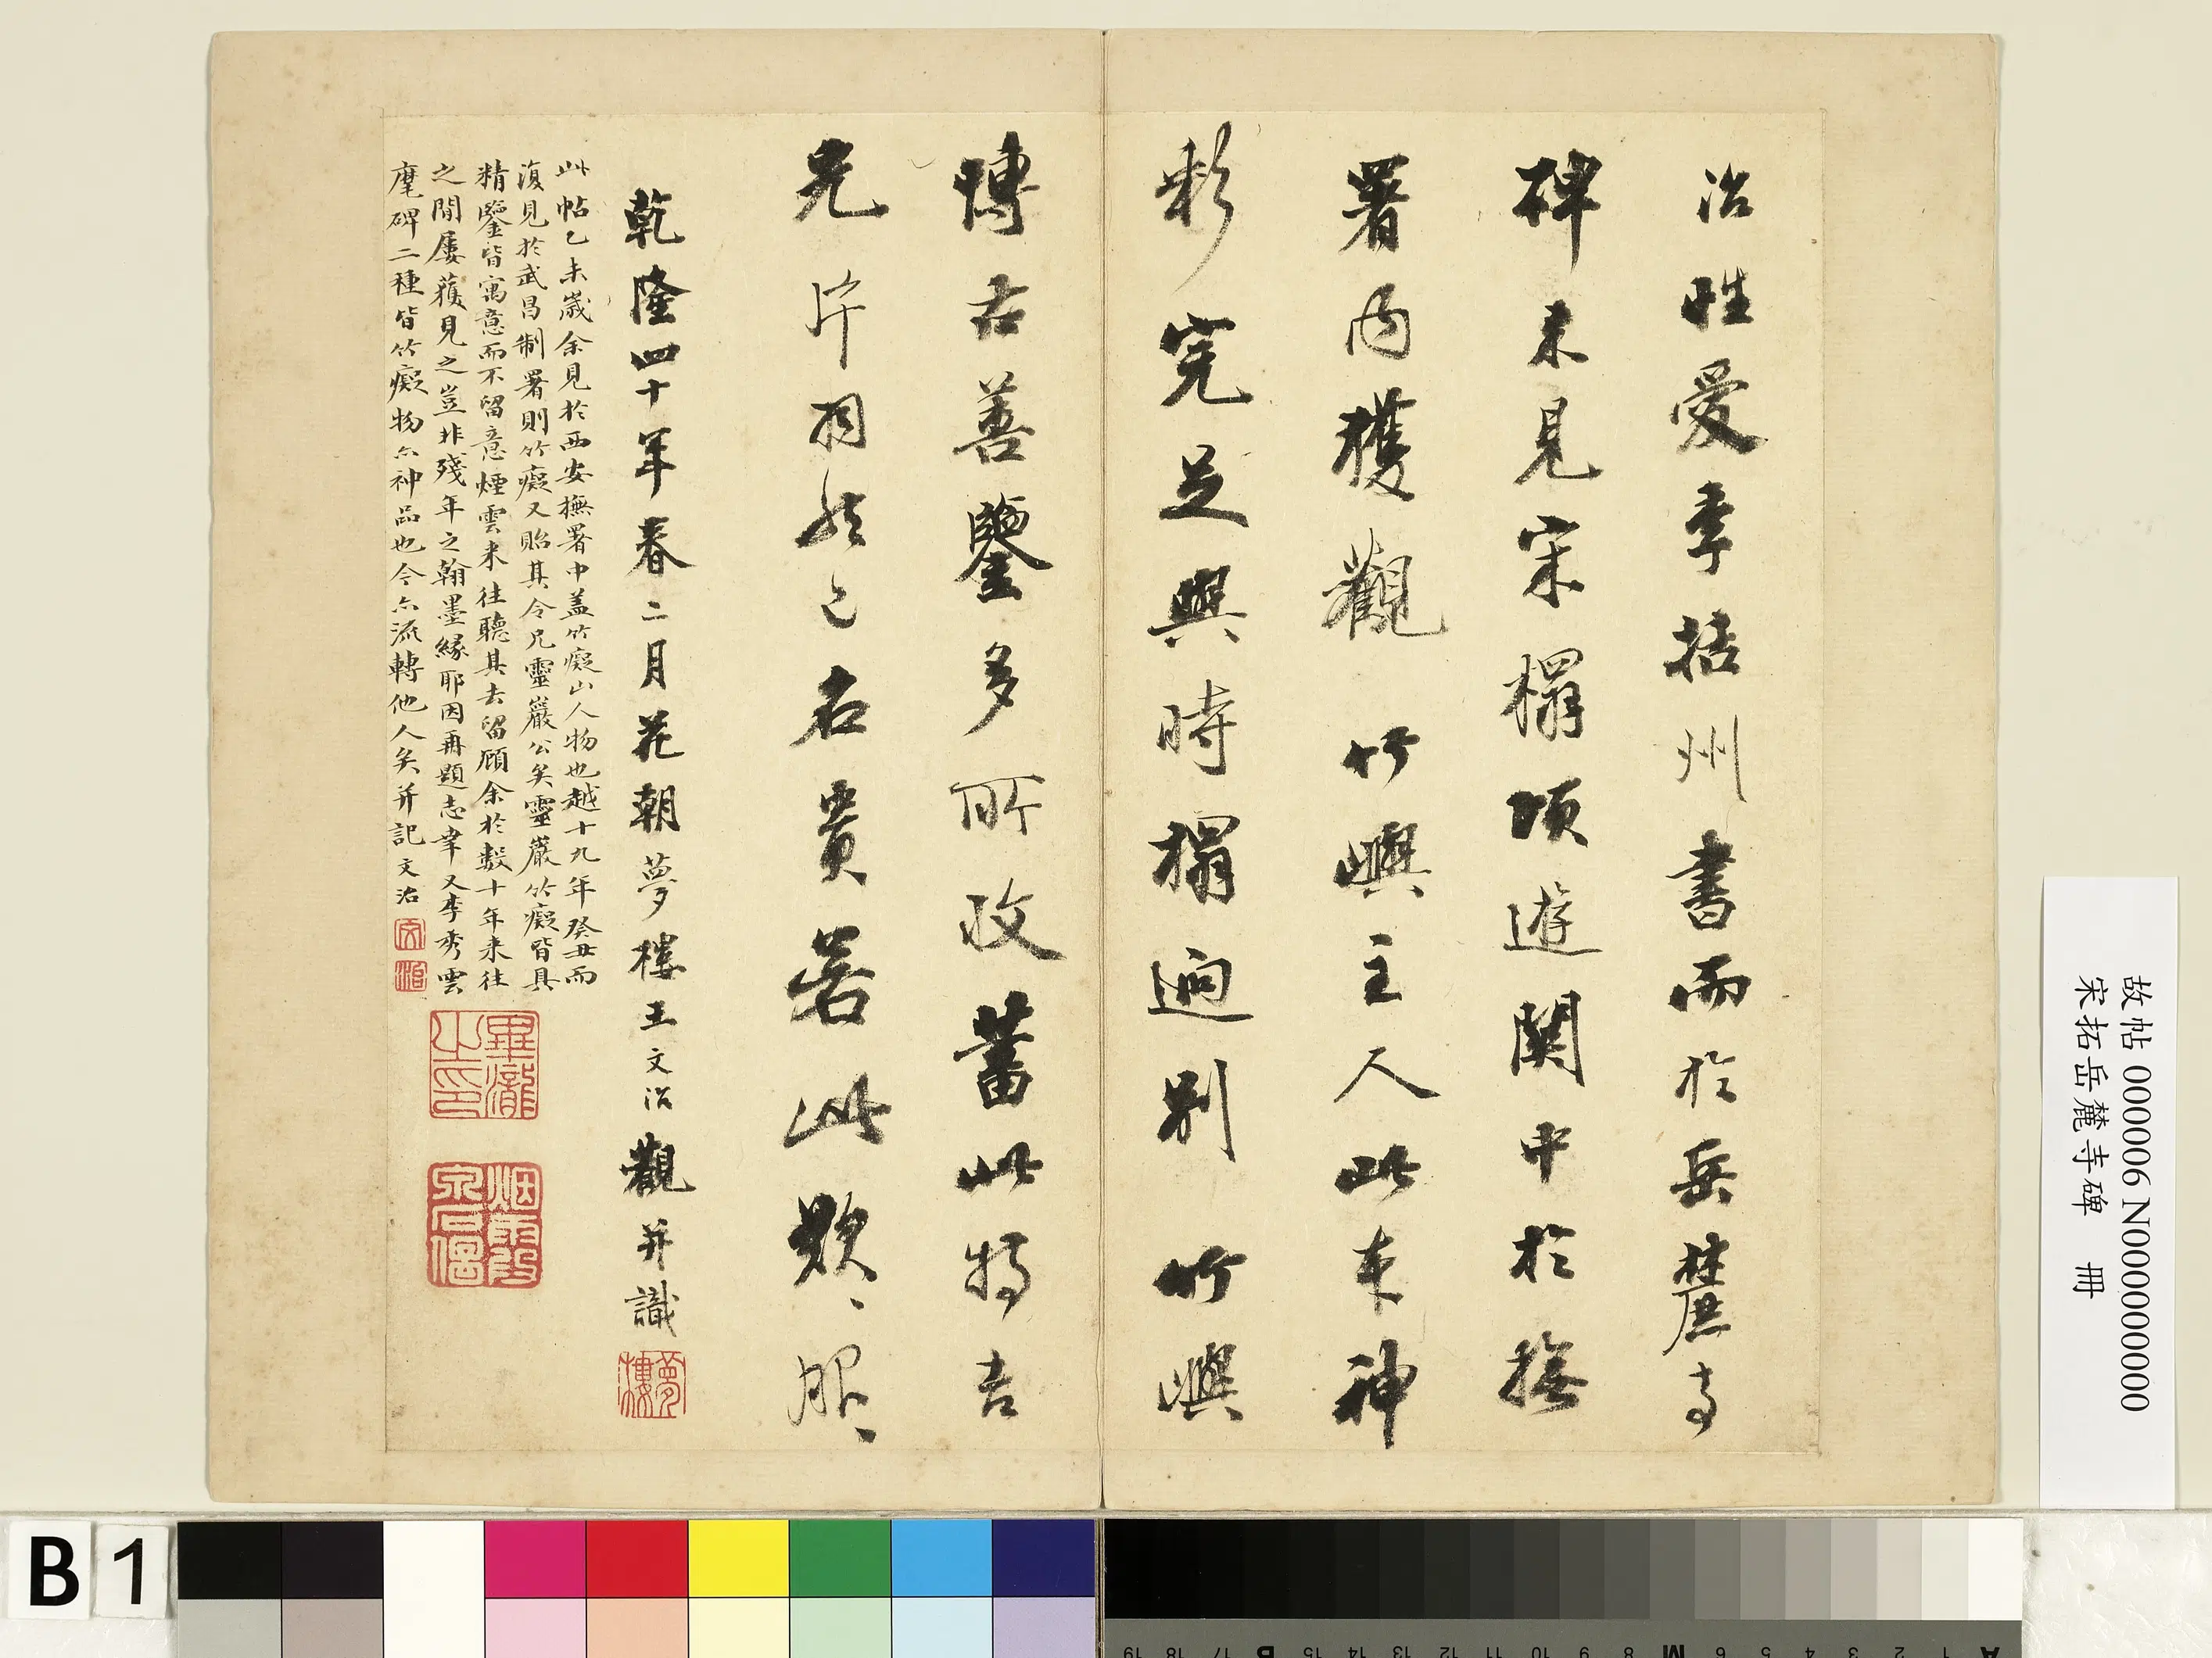 治性愛李括州書而於岳麓寺
碑未見宋榻頃遊關中於撫
署內獲觀竹嶼主人此本神
彩完足與時榻逈别竹嶼
博古善鑒多所收蓄此特吉
光片羽然已右貴若此歎、服、
乾隆四十年春二月花朝夢樓王文治觀并識
夢樓
此帖乙未歲余見於西安撫署中蓋竹癡山人物也越十九年癸丑而
復見於武昌制署則竹癡又貽其令兄靈巖公矣靈巖竹癡皆具
精鑒皆寓意而不留意煙雲來往聽其去留顧余於數十年來往
之間屢獲見之豈非殘年之翰墨緣耶因再題志幸又李秀雲
麾碑二種皆竹癡物亦神品也今亦流轉他人矣并記文治
文
治
畢瀧之印
故帖 000006 N000000000
宋拓岳麓寺碑 冊
B 1
A 1 2 3 4 5 6 M 8 9 10 11 12 13 14 15 B 17 18 19